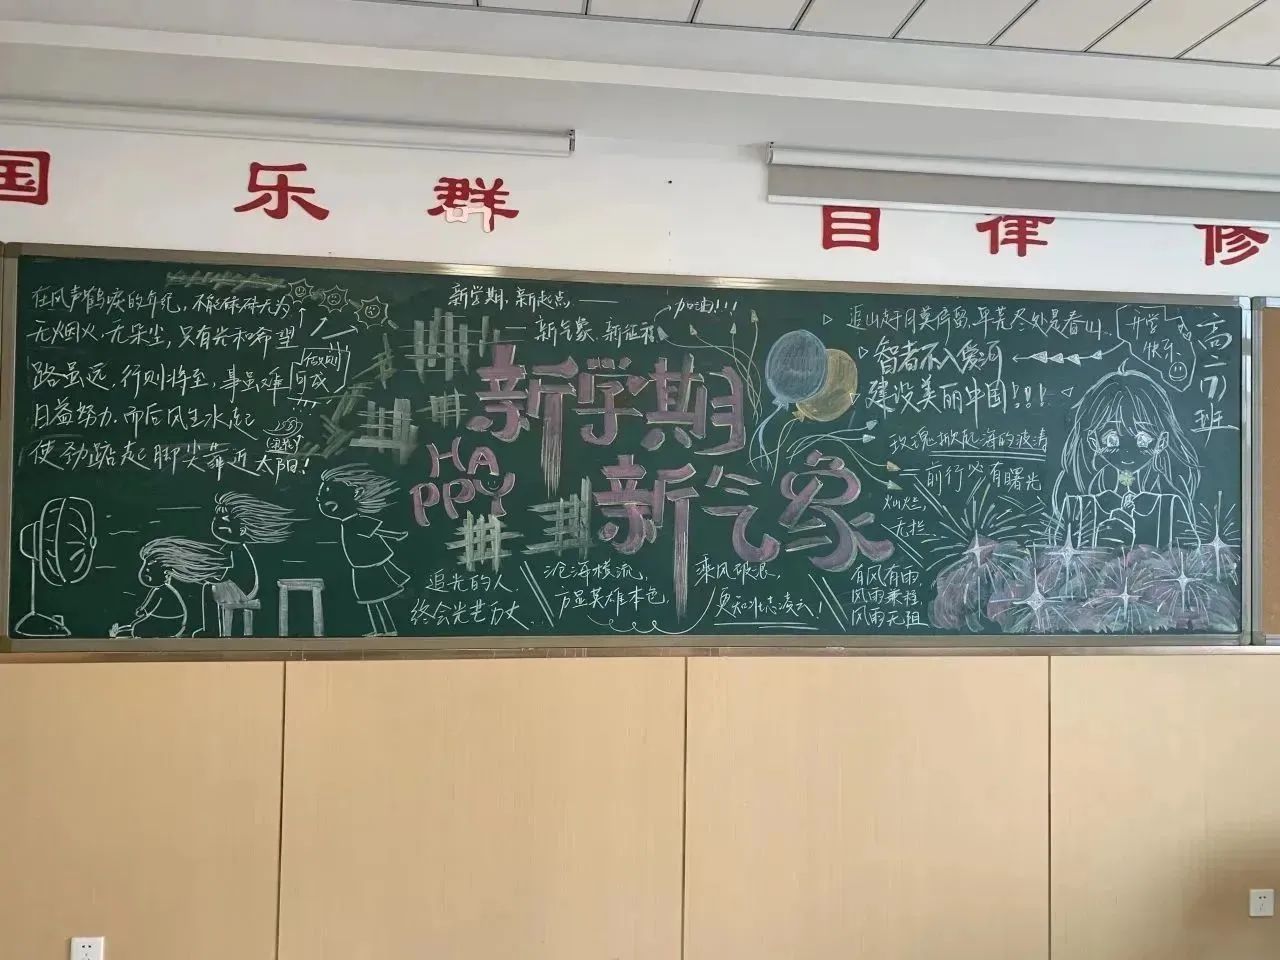 国 乐 群 自 律 修
在风声鹤唳的年纪，不能碌碌无为
无烟火，无杂尘，只有光和希望
路虽远，行则将至，事虽难
做则
可成
日益努力，而后风生水起
使劲踮起脚尖靠近太阳！
新学期，新起点，——
——新气象，新征程
加油！！！
新学期
新气象
HA
PPY
追光的人
终会光芒万丈
沧海横流，
方显英雄本色，
乘风破浪，
更知壮志凌云！
有风有雨，
风雨兼程，
风雨无阻
追山赶月莫停留，平芜尽处是春山
智者不入爱河
建设美丽中国！！！
玫瑰掀航海的波涛
前行必有曙光
灿烂，
无拦
开学
快乐
高二
班